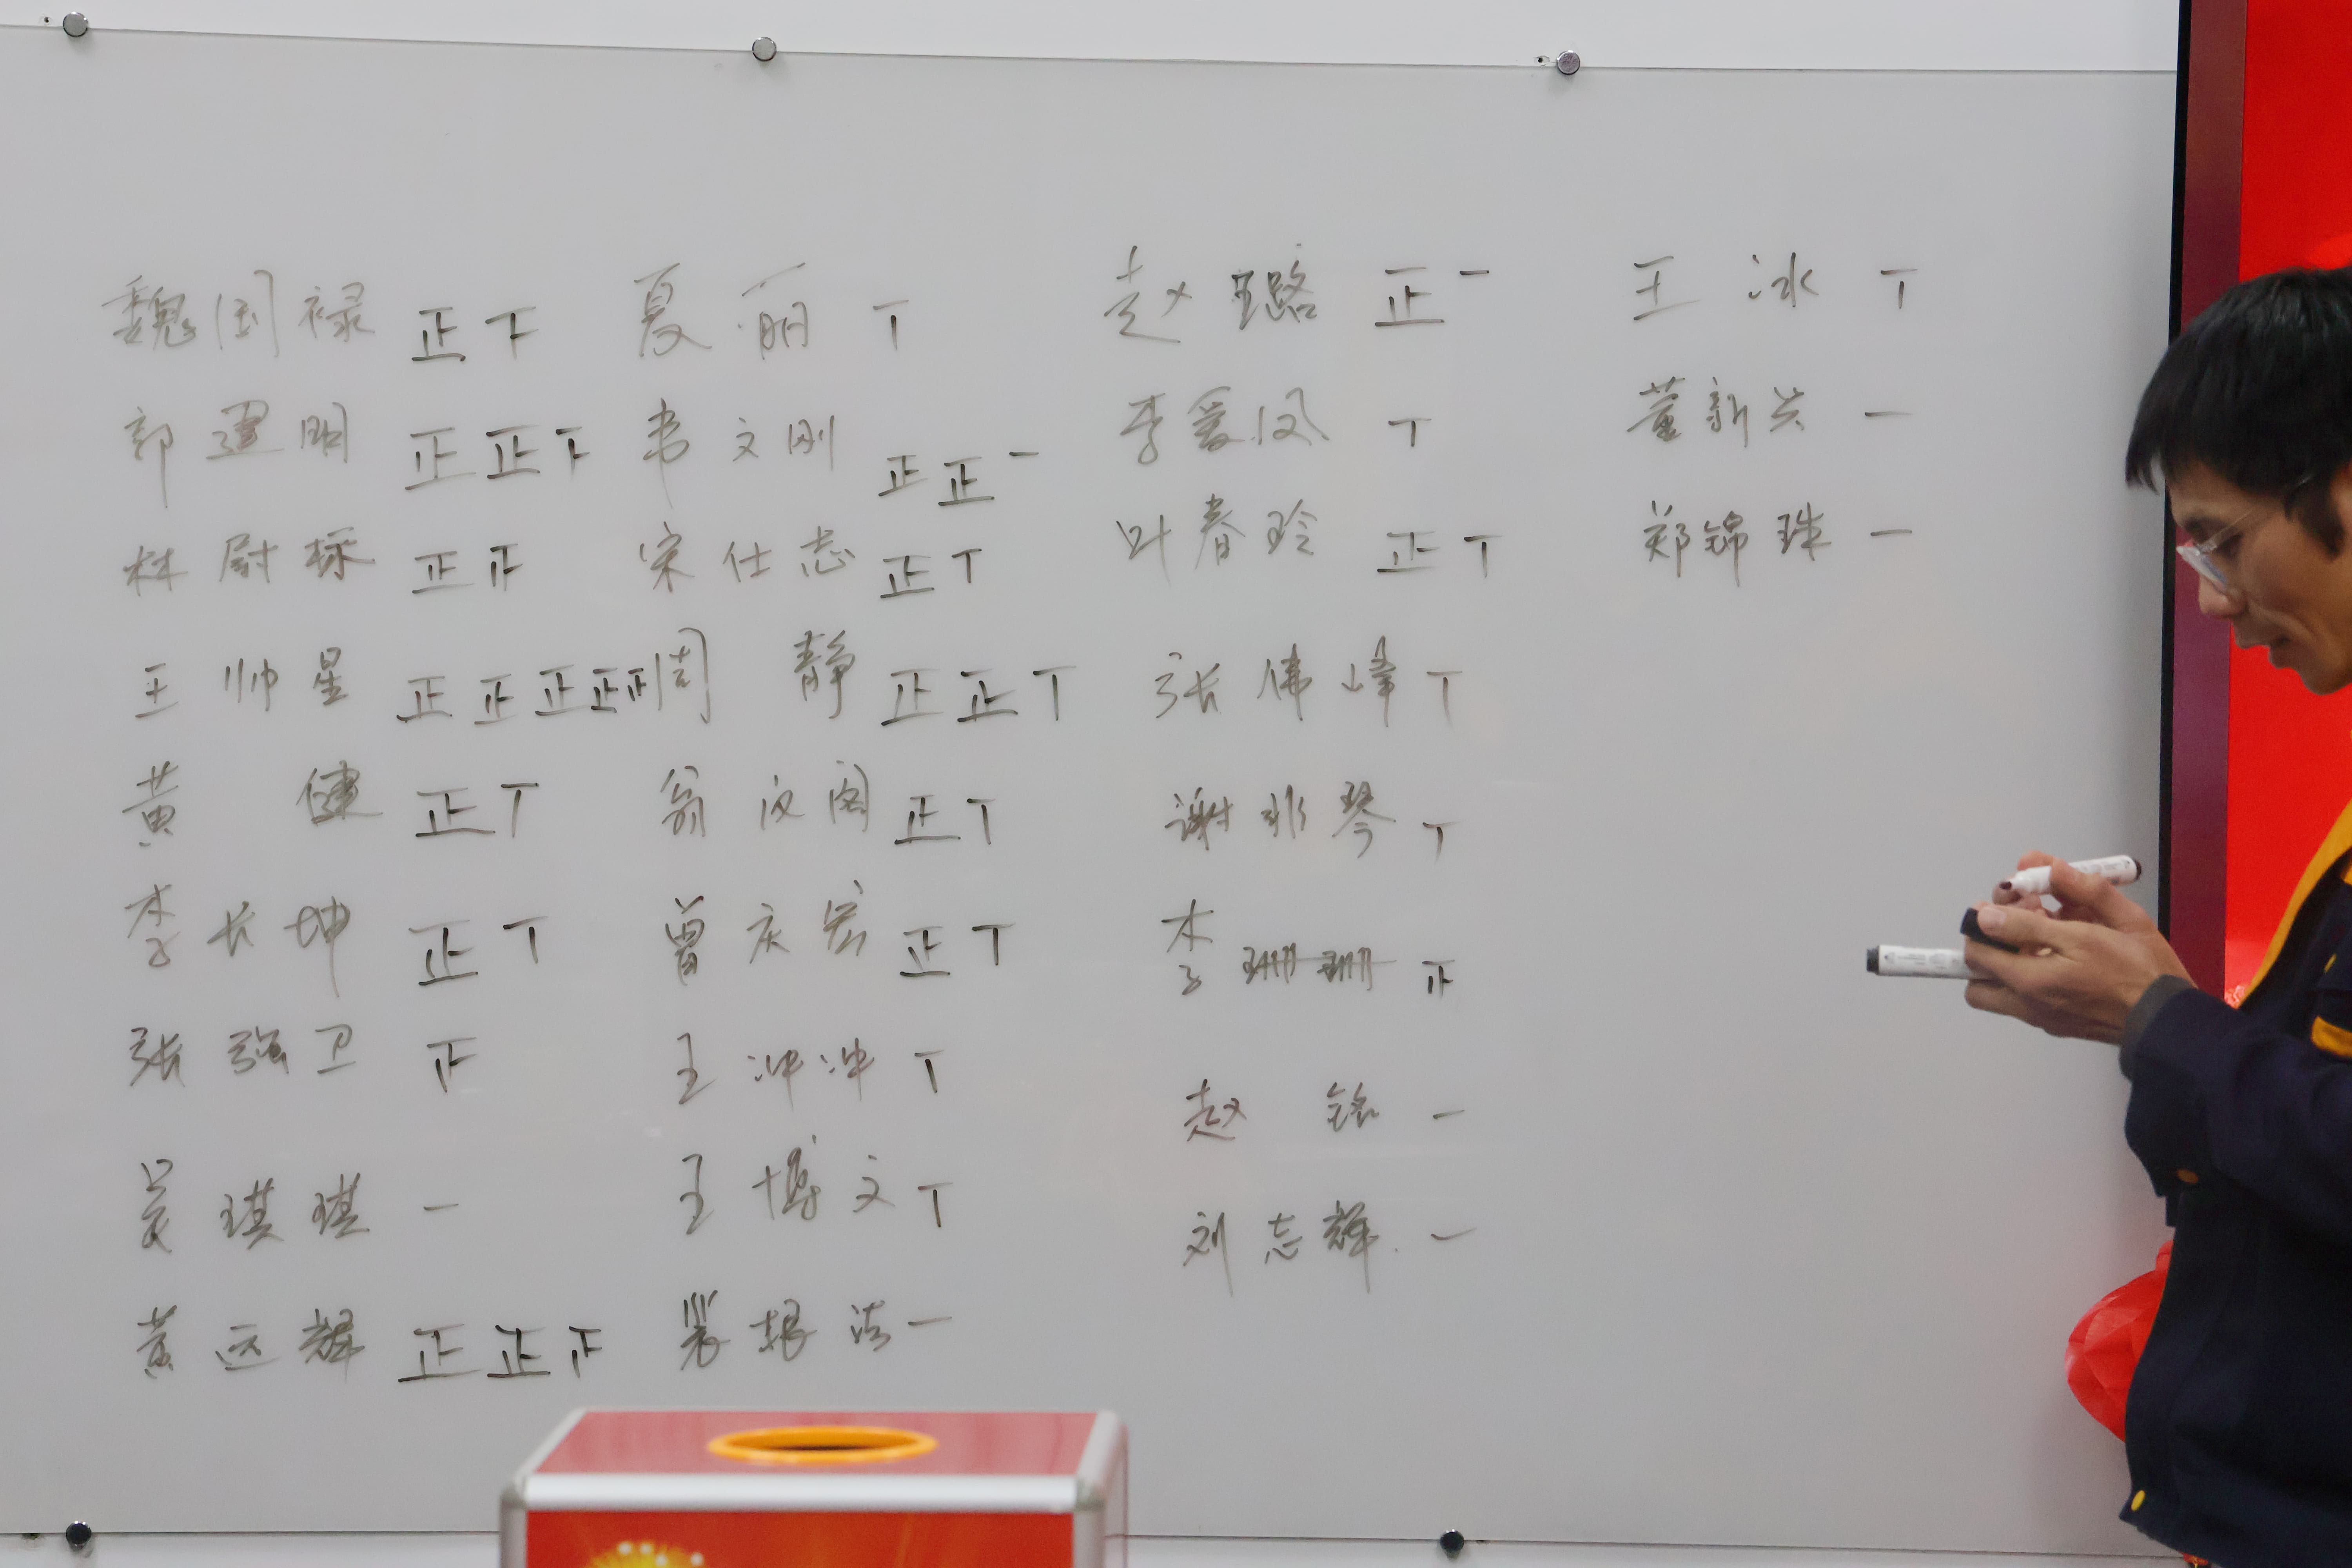 魏国禄 正下
郭建明 正正下
林尉标 正正
王帅星 正正正正正
黄健 正丅
李长坤 正丅
张强卫 正
吴琪琪 一
黄远辉 正正正
夏丽 丅
韦文刚 正正一
宋仕志 正丅
周静 正正丅
翁汉阁 正丅
曾庆宏 正丅
王冲冲 丅
王博文 丅
裴根法 一
赵璐 正一
李爱凤 丅
叶春玲 正丅
张伟峰 丅
谢非琴 丅
李珊珊 正
赵铭 一
刘志辉 一
王冰 丅
董新兴 一
郑锦珠 一